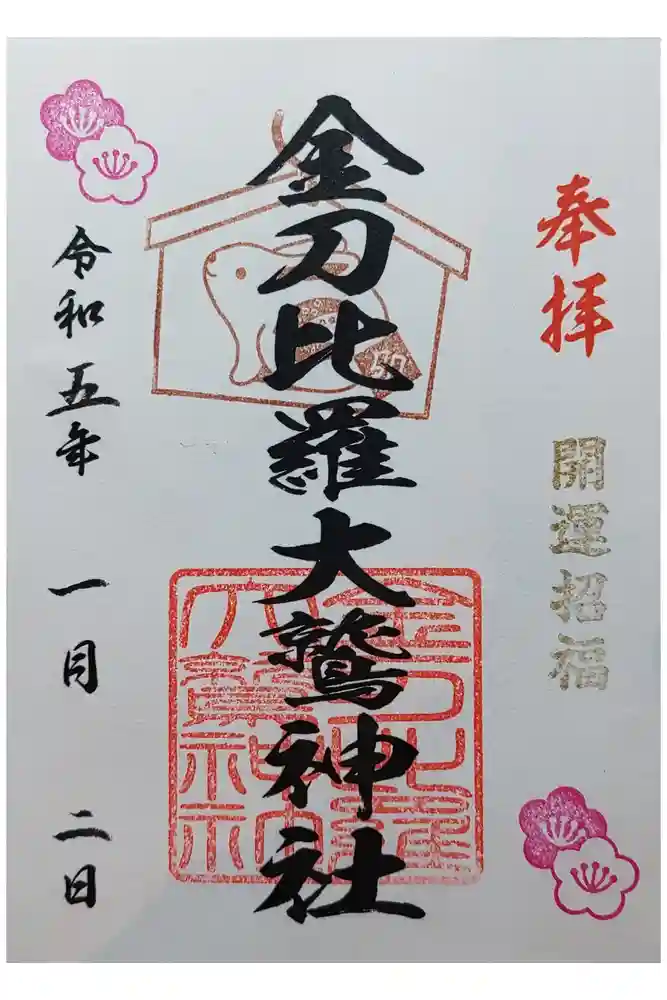 奉拝
開運招福
金刀比羅大鷲神社
卯
金刀比羅大鷲神社
令和五年 一月 二日